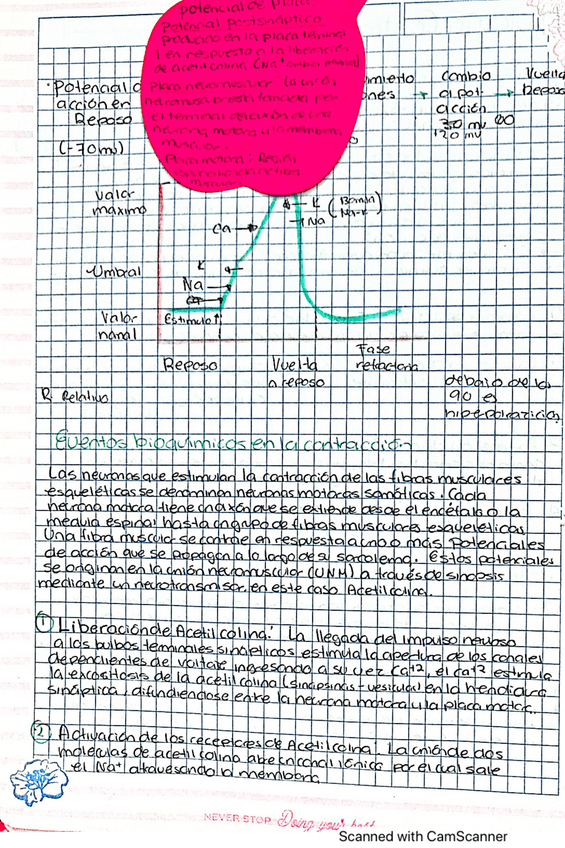 potencial de placa
Potencial Postsináptico
producido en la placa terminal
en respuesta a la liberación
de acetilcolina. (Na+
Placa neuromuscular: la unión
neuromuscular es formada por
el terminal de axón de una
neurona motora y la membrana
muscular.
Placa motora: Región
Potencial d
acción en
Reposo
(-70mv)
miento
ones → cambio
al pot.
acción
30 mv
120 mv
→ Vuelta
Reposo
Valor
máximo
Ca →
K (Bomba
Na-K)
→ Na
Umbral
K
Na →
Estimulo ↑
Valor
Reposo
Vuelta
a reposo
Fase
refractaria
R. Relativo
debajo de la
90 es
Eventos bioquimicos en la contracción
Las neuronas que estimulan la contracción de las fibras musculares
esqueléticas se denominan neuronas motoras somáticas. Cada
neurona motora tiene un axón que se extiende desde el encéfalo o la
medula espinal hasta un grupo de fibras musculares esqueléticas
Una fibra muscular se contrae en respuesta a uno o más Potenciales
de acción que se propagan a lo largo del sarcolema. Estos potenciales
se originan en la unión neuromuscular (UNM) a través de sinapsis
mediante un neurotransmisor, en este caso Acetilcolina.
① Liberación de Acetilcolina: La llegada del impulso nervioso
a los bulbos terminales sinapticos estimula la apertura de los canales
dependientes de voltaje ingresando a su vez Ca+2, el Ca+2 estimula
la exocitosis de la acetilcolina en la hendidura
sináptica, difundiendose entre la neurona motora y la placa motor.
② Activación de los receptores de Acetilcolina: La unión de dos
moleculas de acetilcolina abre un canal iónico por el cual sale
el Na+ atravesando la membrana.
NEVER STOP Doing your best
Scanned with CamScanner